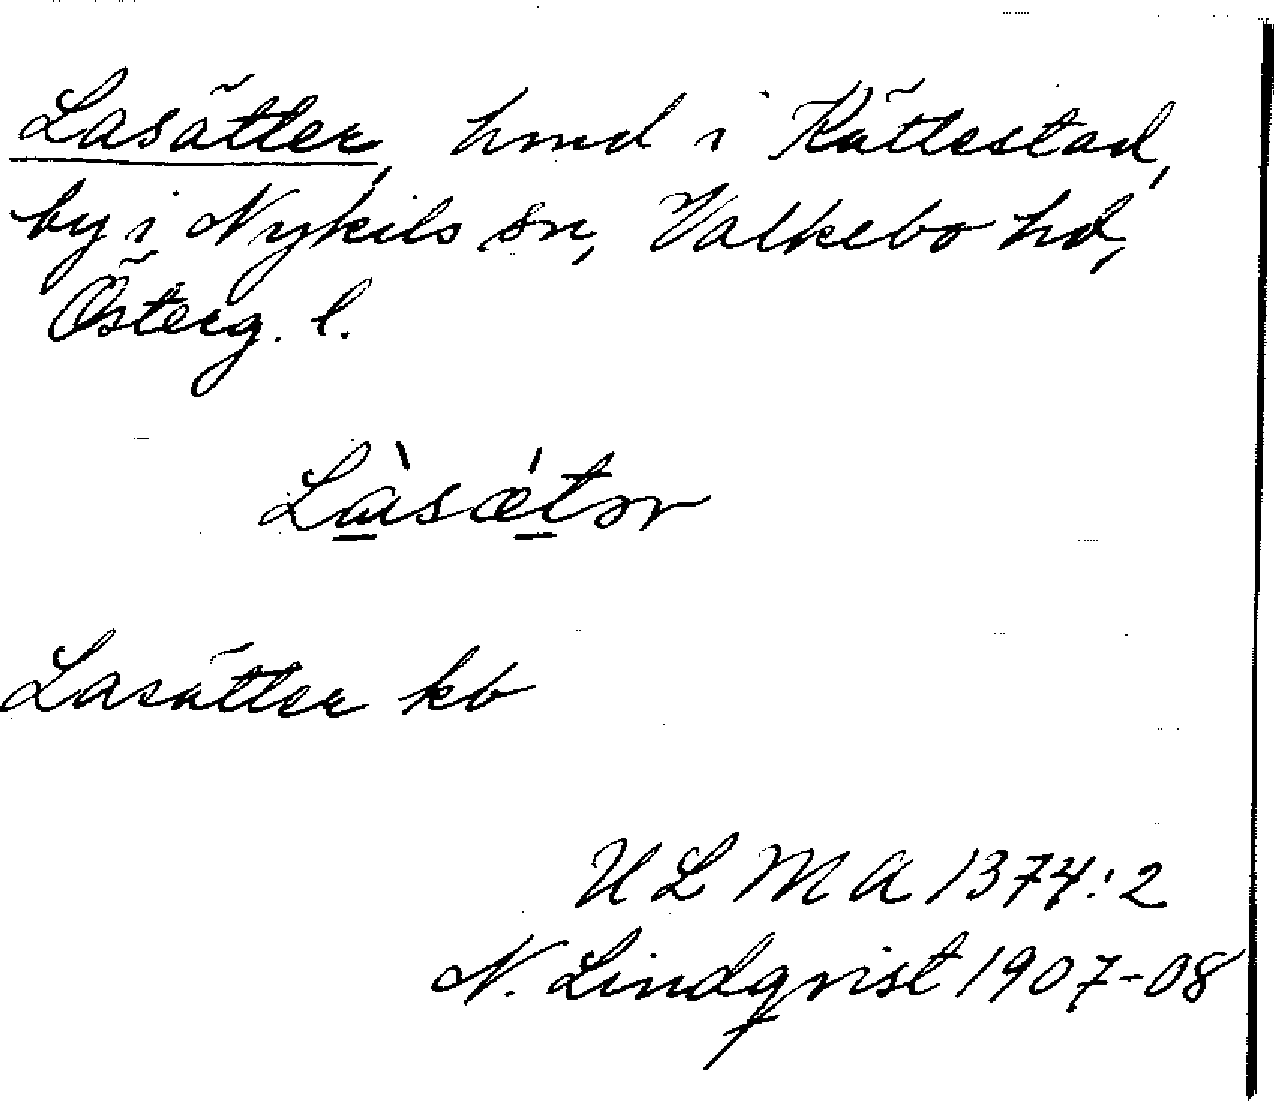 Lasätter, hmd i Kättestad,
by i Nykils sn, Valkebo hd,
Österg. l.
Là̱sǽ̱tər
Lasätter kb
ULMA 1374:2
N. Lindqvist 1907-08